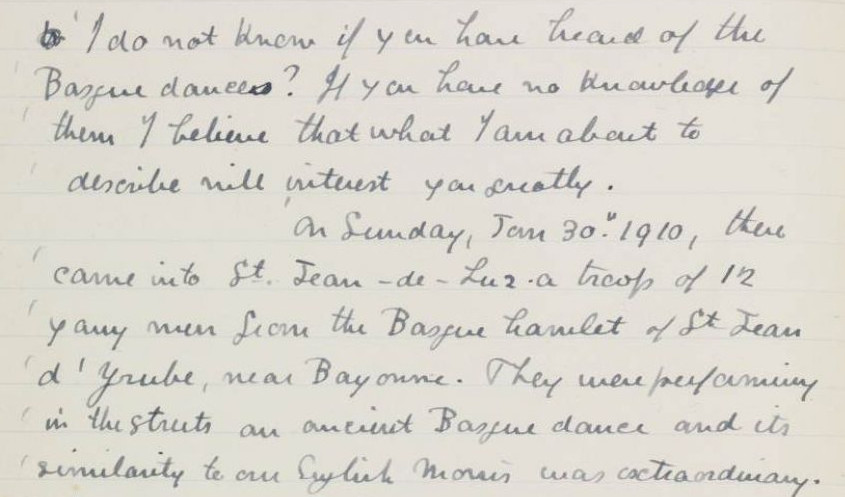 ' I do not know if you have heard of the
' Basque dances? If you have no knowledge of
' them I believe that what I am about to
' describe will interest you greatly.
' On Sunday, Jan 30." 1910, there
' came into St. Jean-de-Luz a troop of 12
' young men from the Basque hamlet of St Jean
' d'Yrube, near Bayonne. They were performing
' in the streets an ancient Basque dance and its
' similarity to our English Morris was extraordinary.